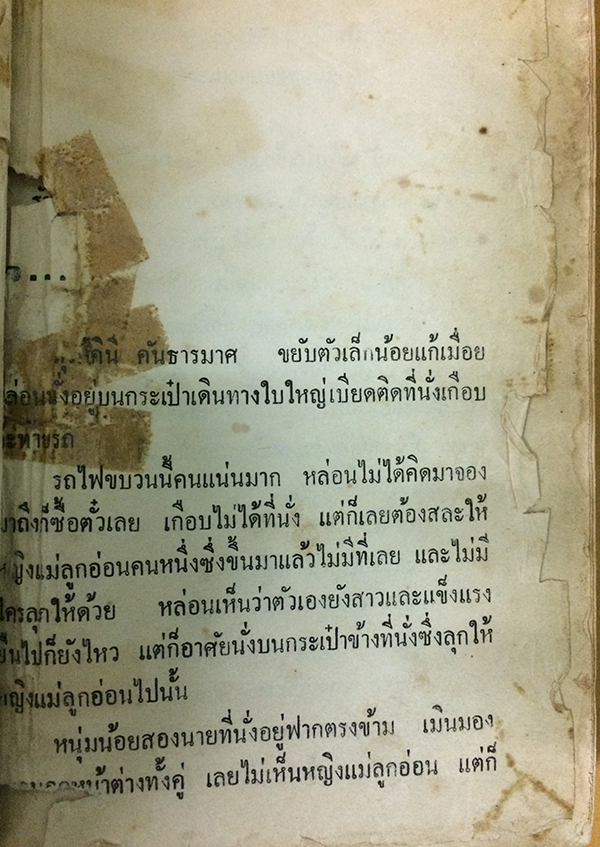 ...
คันธารมาศ ขยับตัวเล็กน้อยแก้เมื่อย
นั่งอยู่บนกระเป๋าเดินทางใบใหญ่เบียดติดที่นั่งเกือบ
ท้ายรถ
รถไฟขบวนนี้คนแน่นมาก หล่อนไม่ได้คิดมาจอง
มาถึงก็ซื้อตั๋วเลย เกือบไม่ได้ที่นั่ง แต่ก็เลยต้องสละให้
หญิงแม่ลูกอ่อนคนหนึ่งซึ่งขึ้นมาแล้วไม่มีที่เลย และไม่มี
ใครลุกให้ด้วย หล่อนเห็นว่าตัวเองยังสาวและแข็งแรง
ยืนไปก็ยังไหว แต่ก็อาศัยนั่งบนกระเป๋าข้างที่นั่งซึ่งลุกให้
หญิงแม่ลูกอ่อนไปนั้น
หนุ่มน้อยสองนายที่นั่งอยู่ฟากตรงข้าม เมินมอง
หน้าต่างทั้งคู่ เลยไม่เห็นหญิงแม่ลูกอ่อน แต่ก็